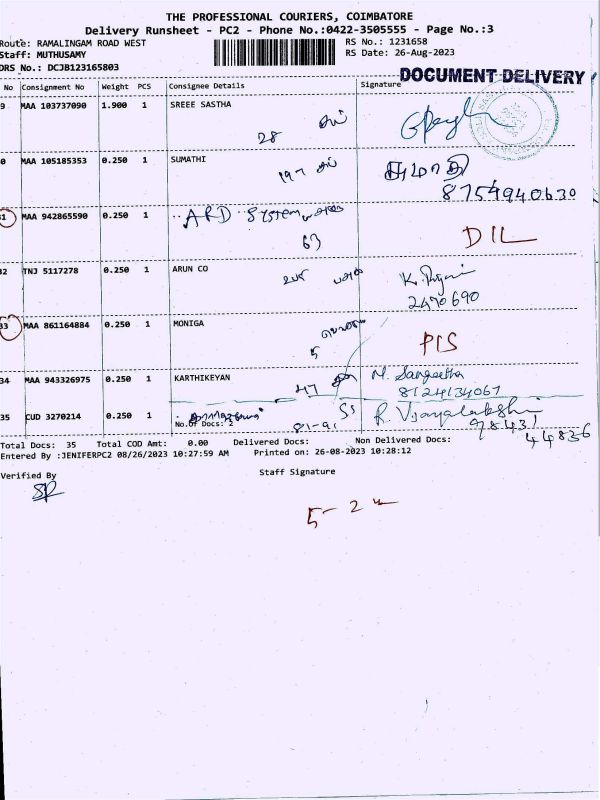 THE PROFESSIONAL COURIERS, COIMBATORE
Delivery Runsheet - PC2 - Phone No.:0422-3505555 - Page No.:3
Route: RAMALINGAM ROAD WEST RS No.: 1231658
Staff: MUTHUSAMY RS Date: 26-Aug-2023
DRS No.: DCJB123165803
DOCUMENT DELIVERY
No Consignment No Weight PCS Consignee Details Signature
9 MAA 103737090 1.900 1 SREEE SASTHA
28
0 MAA 105185353 0.250 1 SUMATHI
197 சுமாதி
8754940630
31 MAA 942865590 0.250 1 ARD System
63 DIL
32 TNJ 5117278 0.250 1 ARUN CO
2470690
33 MAA 861164884 0.250 1 MONIGA
5 PIS
34 MAA 943326975 0.250 1 KARTHIKEYAN M. Sangeetha
47 8124134067
35 CUD 3270214 0.250 1 R. Vijayalakshmi
No.Of Docs: 2 81-91 98431
44836
Total Docs: 35 Total COD Amt: 0.00 Delivered Docs: Non Delivered Docs:
Entered By :JENIFERPC2 08/26/2023 10:27:59 AM Printed on: 26-08-2023 10:28:12
Verified By Staff Signature
5-2